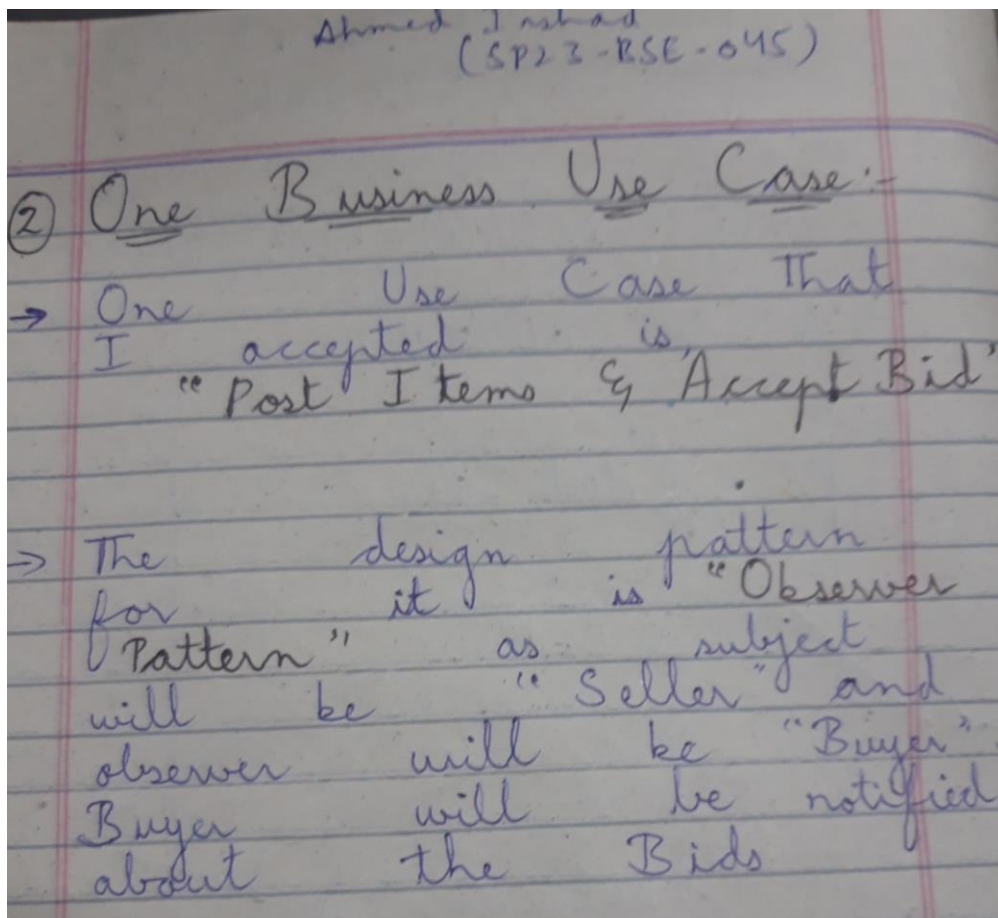 Ahmed Irshad
(SP23-BSE-045)
② One Business Use Case:-
→ One Use Case That
I accepted is
"Post Items & Accept Bid"
→ The design pattern
for it is "Observer
Pattern" as subject
will be "Seller" and
observer will be "Buyer"
Buyer will be notified
about the Bids